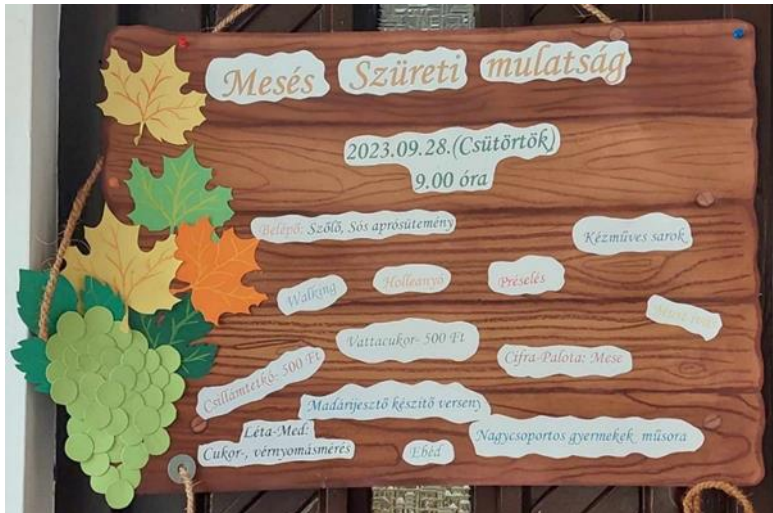 Mesés Szüreti mulatság
2023.09.28.(Csütörtök)
9.00 óra
Belépő: Szőlő, Sós aprósütemény
Kézműves sarok
Walking
Holleanyó
Préselés
Vattacukor- 500 Ft
Csillámtetkó- 500 Ft
Cifra-Palota: Mese
Madárijesztő készítő verseny
Léta-Med:
Cukor-, vérnyomásmérés
Ebéd
Nagycsoportos gyermekek műsora